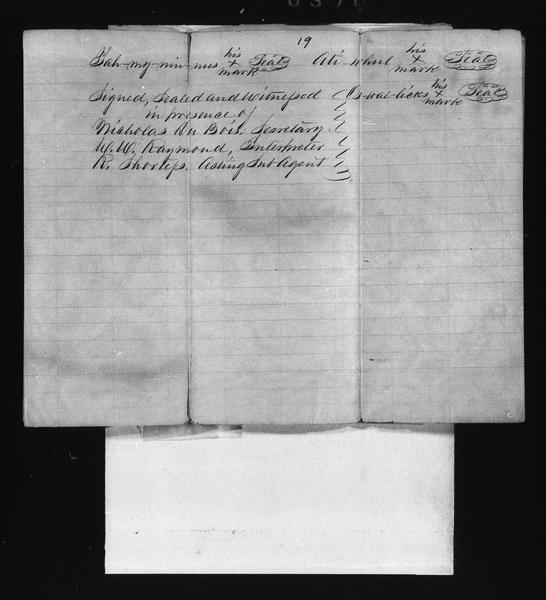 19
Tah-my-nin-nus his x mark Seal Ati-whul his x mark Seal
Signed, Sealed and Witnessed ( S-wal-licks his x mark Seal
in presence of
Nicholas Du Bois. Secretary
W. W. Raymond, Interpreter
R. Shortess. Acting Sub Agent